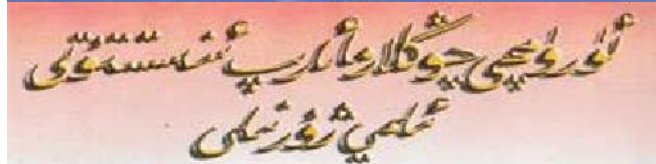 ئۈرۈمچى چوڭلار مائارىپ ئىنستىتۇتى
ئىلمىي ژۇرنىلى